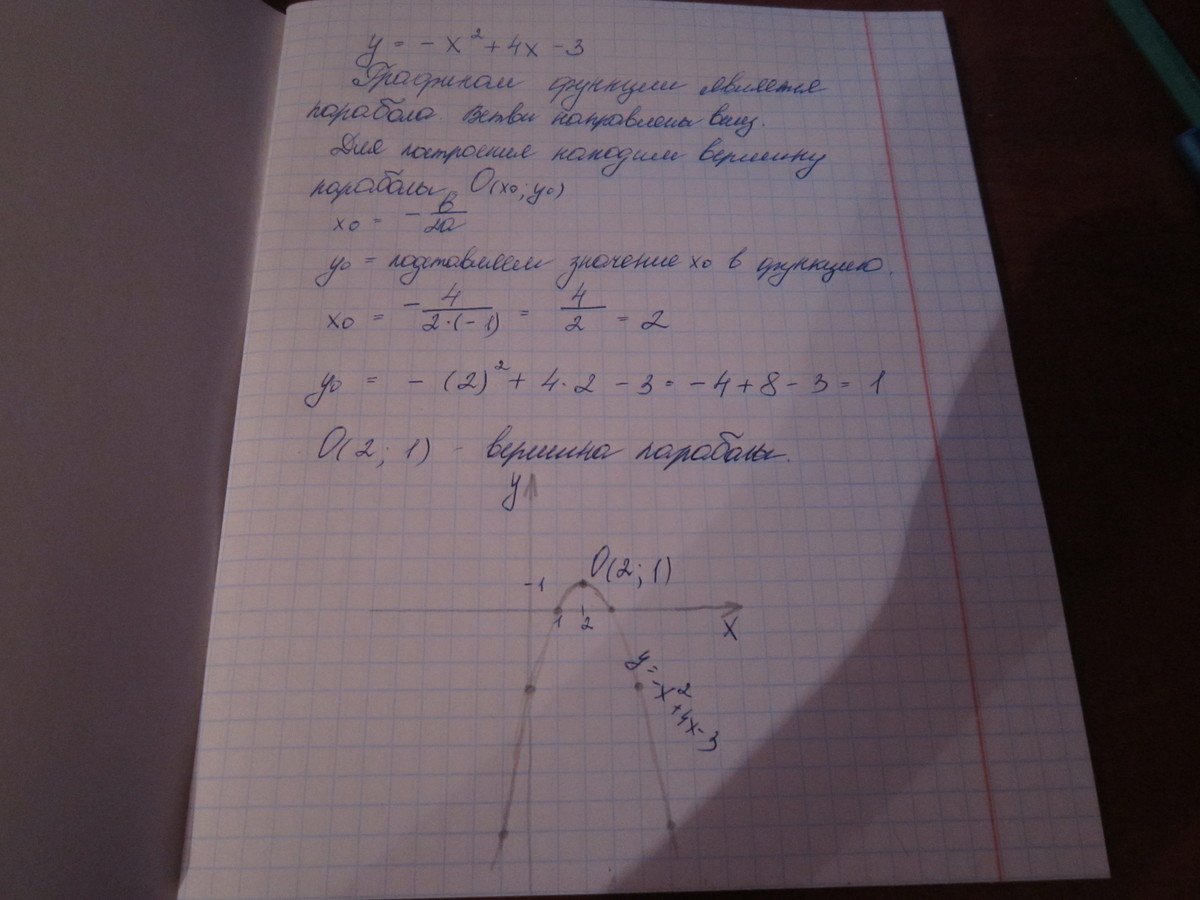 y = - x² + 4x - 3
Графиком функции является
парабола. Ветви направлены вниз.
Для построения находим вершину
параболы O(x0; y0)
x0 = - в/2a
y0 = подставляем значение x0 в функцию.
x0 = - 4/2·(-1) = 4/2 = 2
y0 = - (2)² + 4·2 - 3 = -4 + 8 - 3 = 1
O(2; 1) - вершина параболы.
y
O(2; 1)
-1
1 2
x
y = -x² + 4x - 3